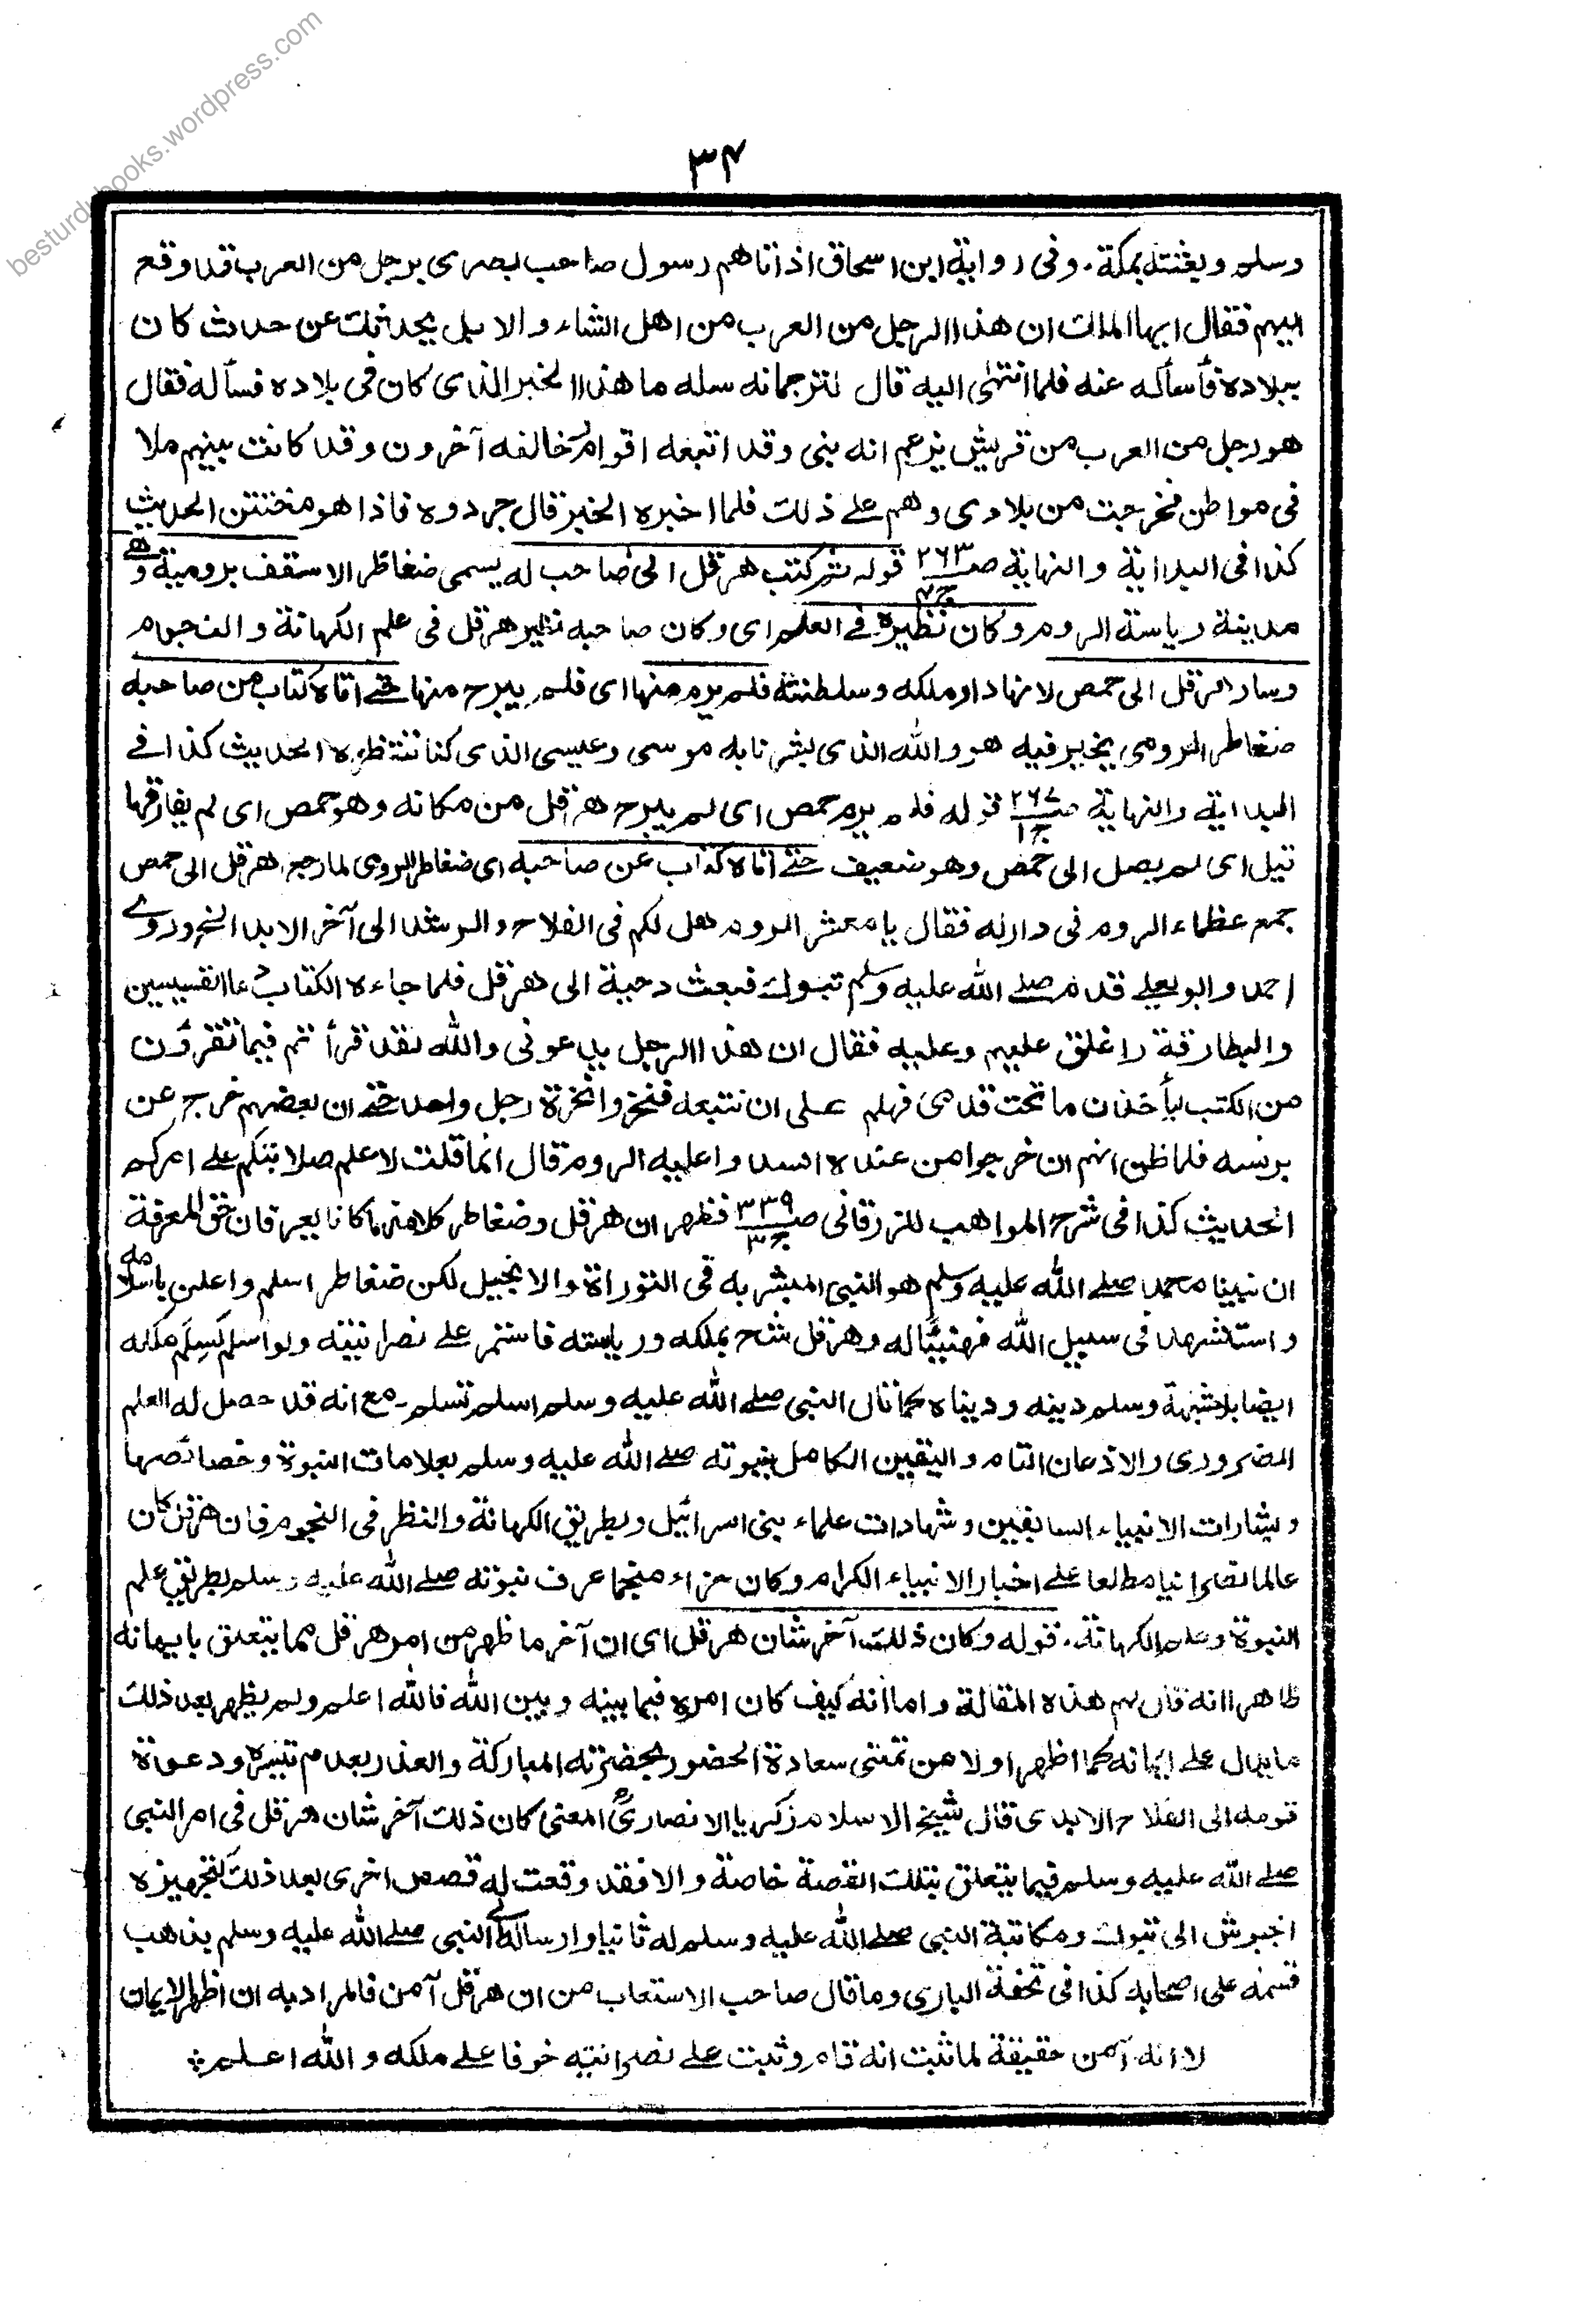 besturdubooks.wordpress.com
٣٤
وسلم وبغتته بمكة. وفى رواية ابن اسحاق اذ اتاهم رسول صاحب بصرى برجل من العرب قد وقع
اليهم فقال ايها الملك ان هذا الرجل من العرب من اهل الشاء والابل يحدثك عن حدث كان
ببلاده فأسأله عنه فلما انتهٰى اليه قال لترجمانه سله ما هذا الخبر الذى كان فى بلاده فسأله فقال
هو رجل من العرب من قريش يزعم انه نبى وقد اتبعه اقوام وخالفه آخرون وقد كانت بينهم ملا
فى مواطن فخرجت من بلادى وهم على ذلك فلما اخبره الخبر قال جردوه فاذا هو مختتن الحديث
كذا فى البداية والنهاية صـ٢٦٣ ج٤ قوله ثم كتب هرقل الى صاحب له يسمى ضغاطر الاسقف برومية وهى
مدينة رياسة الروم وكان نظيره فى العلم اى وكان صاحبه نظير هرقل فى علم الكهانة والنجوم
وسار هرقل الى حمص لانها دار ملكه وسلطنته فلم يرم منها اى فلم يبرح منها حتى اتاه كتاب من صاحبه
ضغاطر الرومى يخبر فيه هو والله الذى بشرنا به موسى وعيسى الذى كنا ننتظره الحديث كذا فى
البداية والنهاية صـ٢٦٧ ج٤ قوله فلم يرم حمص اى لم يبرح هرقل من مكانه وهو حمص اى لم يفارقها
قيل اى لم يصل الى حمص وهو ضعيف حتى اتاه كتاب عن صاحبه اى ضغاطر الرومى لما رجع هرقل الى حمص
جمع عظماء الروم فى دار له فقال يا معشر الروم هل لكم فى الفلاح والرشد الى آخر الابد الخ وروى
احمد وابو يعلى قدم صلى الله عليه وسلم تبوك فبعث دحية الى هرقل فلما جاءه الكتاب دعا القسيسين
والبطارقة واغلق عليهم وعليه فقال ان هذا الرجل يدعونى والله لقد قرأتم فيما تقرؤن
من الكتب ليأخذن ما تحت قدمى فهلم على ان نتبعه فنخروا نخرة رجل واحد حتى ان بعضهم خرج عن
برنسه فلما ظن انهم ان خرجوا من عنده افسدوا عليه الروم قال انما قلت لاعلم صلابتكم على امركم
الحديث كذا فى شرح المواهب للزرقانى صـ٣٣٩ ج٣ فظهر ان هرقل وضغاطر كلاهما كانا يعرفان حق المعرفة
ان نبينا محمدا صلى الله عليه وسلم هو النبى المبشر به فى التوراة والانجيل لكن ضغاطر اسلم واعلن باسلامه
واستشهد فى سبيل الله فهنيئا له وهرقل شح بملكه ورياسته فاستمر على نصرانيته ولو اسلم لسلم ملكه
ايضا بلا شبهة وسلم دينه ودنياه كما قال النبى صلى الله عليه وسلم اسلم تسلم. مع انه قد حصل له العلم
الضرورى والاذعان التام واليقين الكامل بنبوته صلى الله عليه وسلم بعلامات النبوة وخصائصها
وبشارات الانبياء السابقين وشهادات علماء بنى اسرائيل وبطريق الكهانة والنظر فى النجوم فان هرقل كان
عالما نصرانيا مطالعا على اخبار الانبياء الكرام وكان حزاء منجما عرف نبوته صلى الله عليه وسلم بطريق علم
النبوة وعلم الكهانة. قوله وكان ذلك آخر شان هرقل اى ان آخر ما ظهر من امر هرقل مما يتعلق بايمانه
ظاهرا انه قال لهم هذه المقالة واما انه كيف كان امره فيما بينه وبين الله فالله اعلم ولم يظهر بعد ذلك
ما يدل على ايمانه كما اظهر اولا من تمنى سعادة الحضور بحضرته المباركة والعذر بعدم تيسره ودعوة
قومه الى الفلاح الابدى قال شيخ الاسلام زكريا الانصارىؒ المعنى كان ذلك آخر شان هرقل فى امر النبى
صلى الله عليه وسلم فيما يتعلق بتلك القصة خاصة والا فقد وقعت له قصص اخرى بعد ذلك كتجهيزه
الجيوش الى تبوك ومكاتبة النبى صلى الله عليه وسلم له ثانيا وارساله الى النبى صلى الله عليه وسلم بذهب
قسمه على اصحابه كذا فى تحفة البارى وما قال صاحب الاستعاب من ان هرقل آمن فالمراد به ان اظهر الايمان
لا انه آمن حقيقة لما ثبت انه قام وثبت على نصرانيته خوفا على ملكه والله اعلم